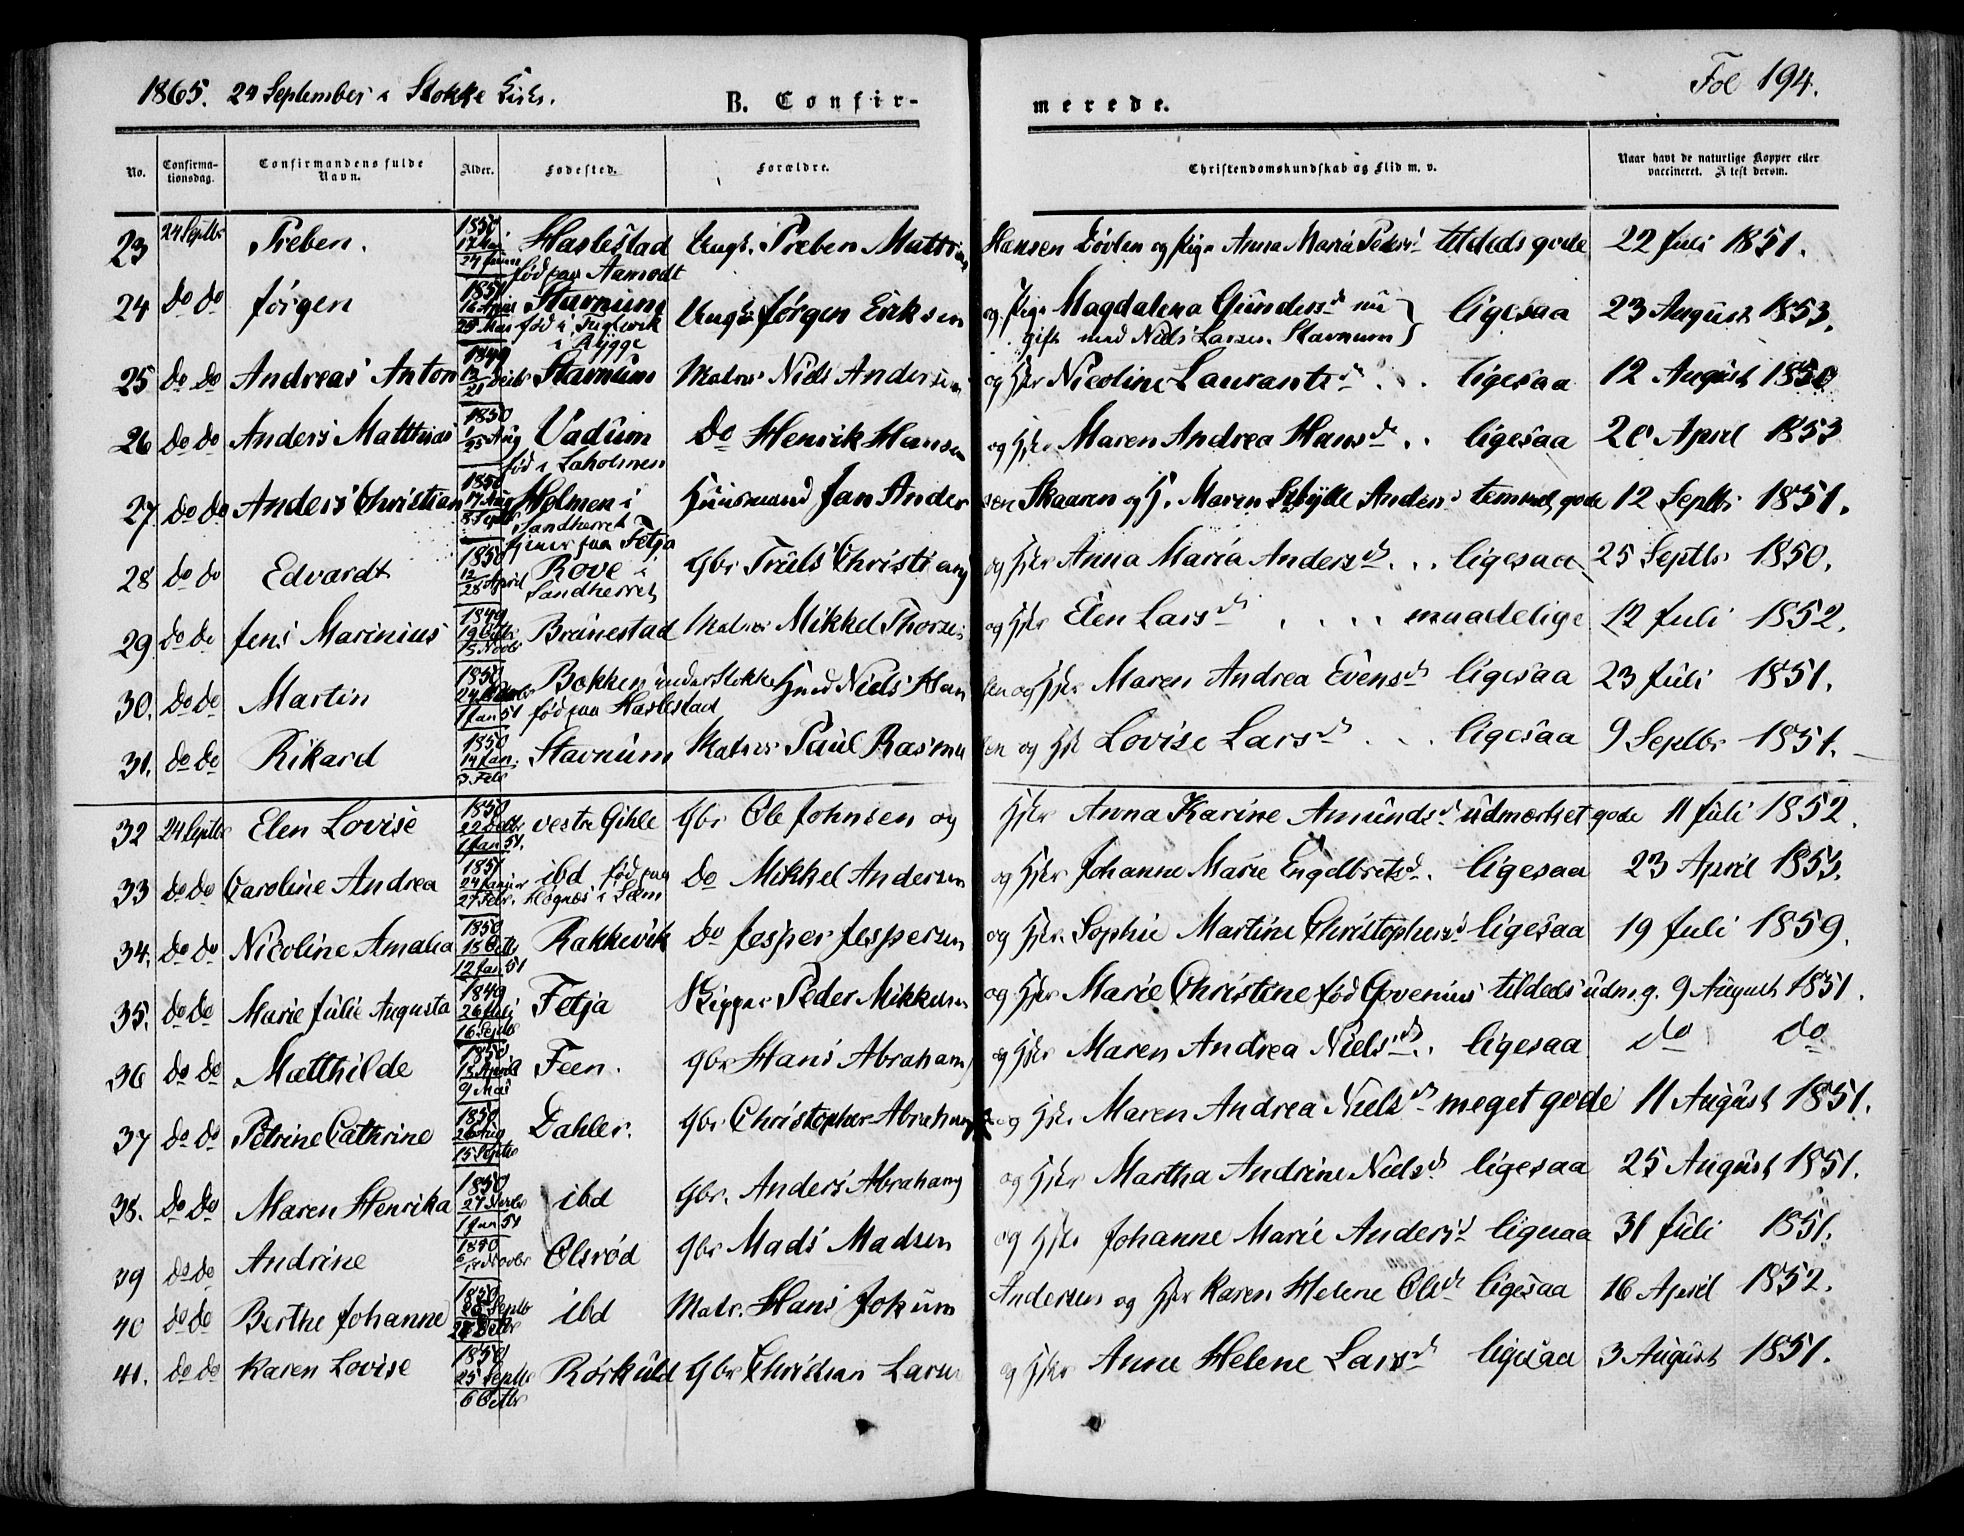 1865. 24 September i Stokke Kirke.
B. Confir-
merede.
Fol 194.
No.
Confirma-
tionsdag.
Confirmandens fulde
Navn.
Alder.
Fødested.
Forældre.
Christendomskundskab og Flid m. v.
Naar havt de naturlige Kopper eller
vaccineret. Attest derom.
23 24 Septbr Preben. 1850 17 Mai 24 Haslestad Ungk. Preben Mathias Hansen og Pige Anna Maria Peders tildeds gode 22 Juli 1851.
født paa Aamodt
24 do do Jørgen 1851 Stavnum Ungk. Jørgen Eriksen og Pige Magdalena Gunders d nu ligesaa 23 August 1853.
født i Fuglevik
gift med Niels Larsen Stavnum
i Rygge
25 do do Andreas Anton 1849 Stavnum Matros Niels Andersen og Hr Nicoline Laurants d ligesaa 12 August 1850
26 do do Anders Matthias 1850 1 Aug 25 Vadum do Henrik Hansen og Hr Maren Andrea Hans d ligesaa 20 April 1853
født i Laholmen
27 do do Anders Christian 1850 17 Aug 8 Septbr Holmen i Huusmand Jan Andersen Skaaren og H. Maren Anders temmel. gode 12 Septbr 1851.
Sandherred
tjener paa Fetja
28 do do Edvardt 1850 12 28 April Rove i Gbr Truls Christians og Hr Anna Maria Anders d ligesaa 25 Septbr 1850.
Sandherred
29 do do Jens Marinius 1849 19 Octbr 15 Novbr Brunestad Matros Mikkel Thorsen og Hr Elen Lars d maadelige 12 Juli 1852.
30. do do Martin 1850 1 Jan 51 Bakken under Stokke Niels Hansen og Hr Maren Andrea Evens d ligesaa 23 Juli 1851.
født paa Haslestad
31. do do Rikard 1850 14 Jan. 3 Febr Stavnum Matros Paul Rasmussen og Lovise Lars d ligesaa 9 Septbr 1851.
32 24 Septbr Elen Lovise 1850 1 Jan 51. vestre Gihle Gbr Ole Johnsen og Anna Karine Amunds d udmærket gode 11 Juli 1852.
33 do do Caroline Andrea 1851 24 Januar 27 Febr. ibd født paa do Mikkel Andersen og Hr Johanne Marie Engelbrets d. ligesaa 23 April 1853.
Høgnæs i Sem
34. do do Nicoline Amalia 1850 15 Octbr 12 Jan 51 Rakkevik do Jesper Jespersen og Hr. Sophie Martine Christophers d ligesaa 19 Juli 1859.
35. do do Marie Julie Augusta 1849 26 Juli 16 Septbr Fetja Skipper Peder Mikkelsen og Hr Marie Christine født Govenius tildeds udm. g. 9 August 1851.
36 do do Matthilde 1850 15 April 9 Mai Feen. Gbr Hans Abrahams og Hr Maren Andrea Niels d. ligesaa do do
37 do do Petrine Cathrine 1850 26 Aug 15 Septbr Dahler. Gbr Christopher Abrahams og Hr Maren Andrea Niels d meget gode 11 August 1851.
38. do do Maren Henrika 1850 1 Jan 51 ibd Gbr. Anders Abrahams og Hr Martha Andrine Niels d ligesaa 25 August 1851.
39 do do Andrine 1850 Novbr Olsrød Gbr Mads Madsen og Hr Johanne Marie Anders d ligesaa 31 Juli 1851.
40 do do Berthe Johanne 1850 Septbr Octbr ibd Matr. Hans Jokum Andersen og Hr Karen Helene Ols d ligesaa 16 April 1852.
41. do do Karen Lovise 1850 25 Septbr 6 Octbr Rørkuld Gbr Christian Larsen og Hr Anne Helene Lars d ligesaa 3 August 1851.